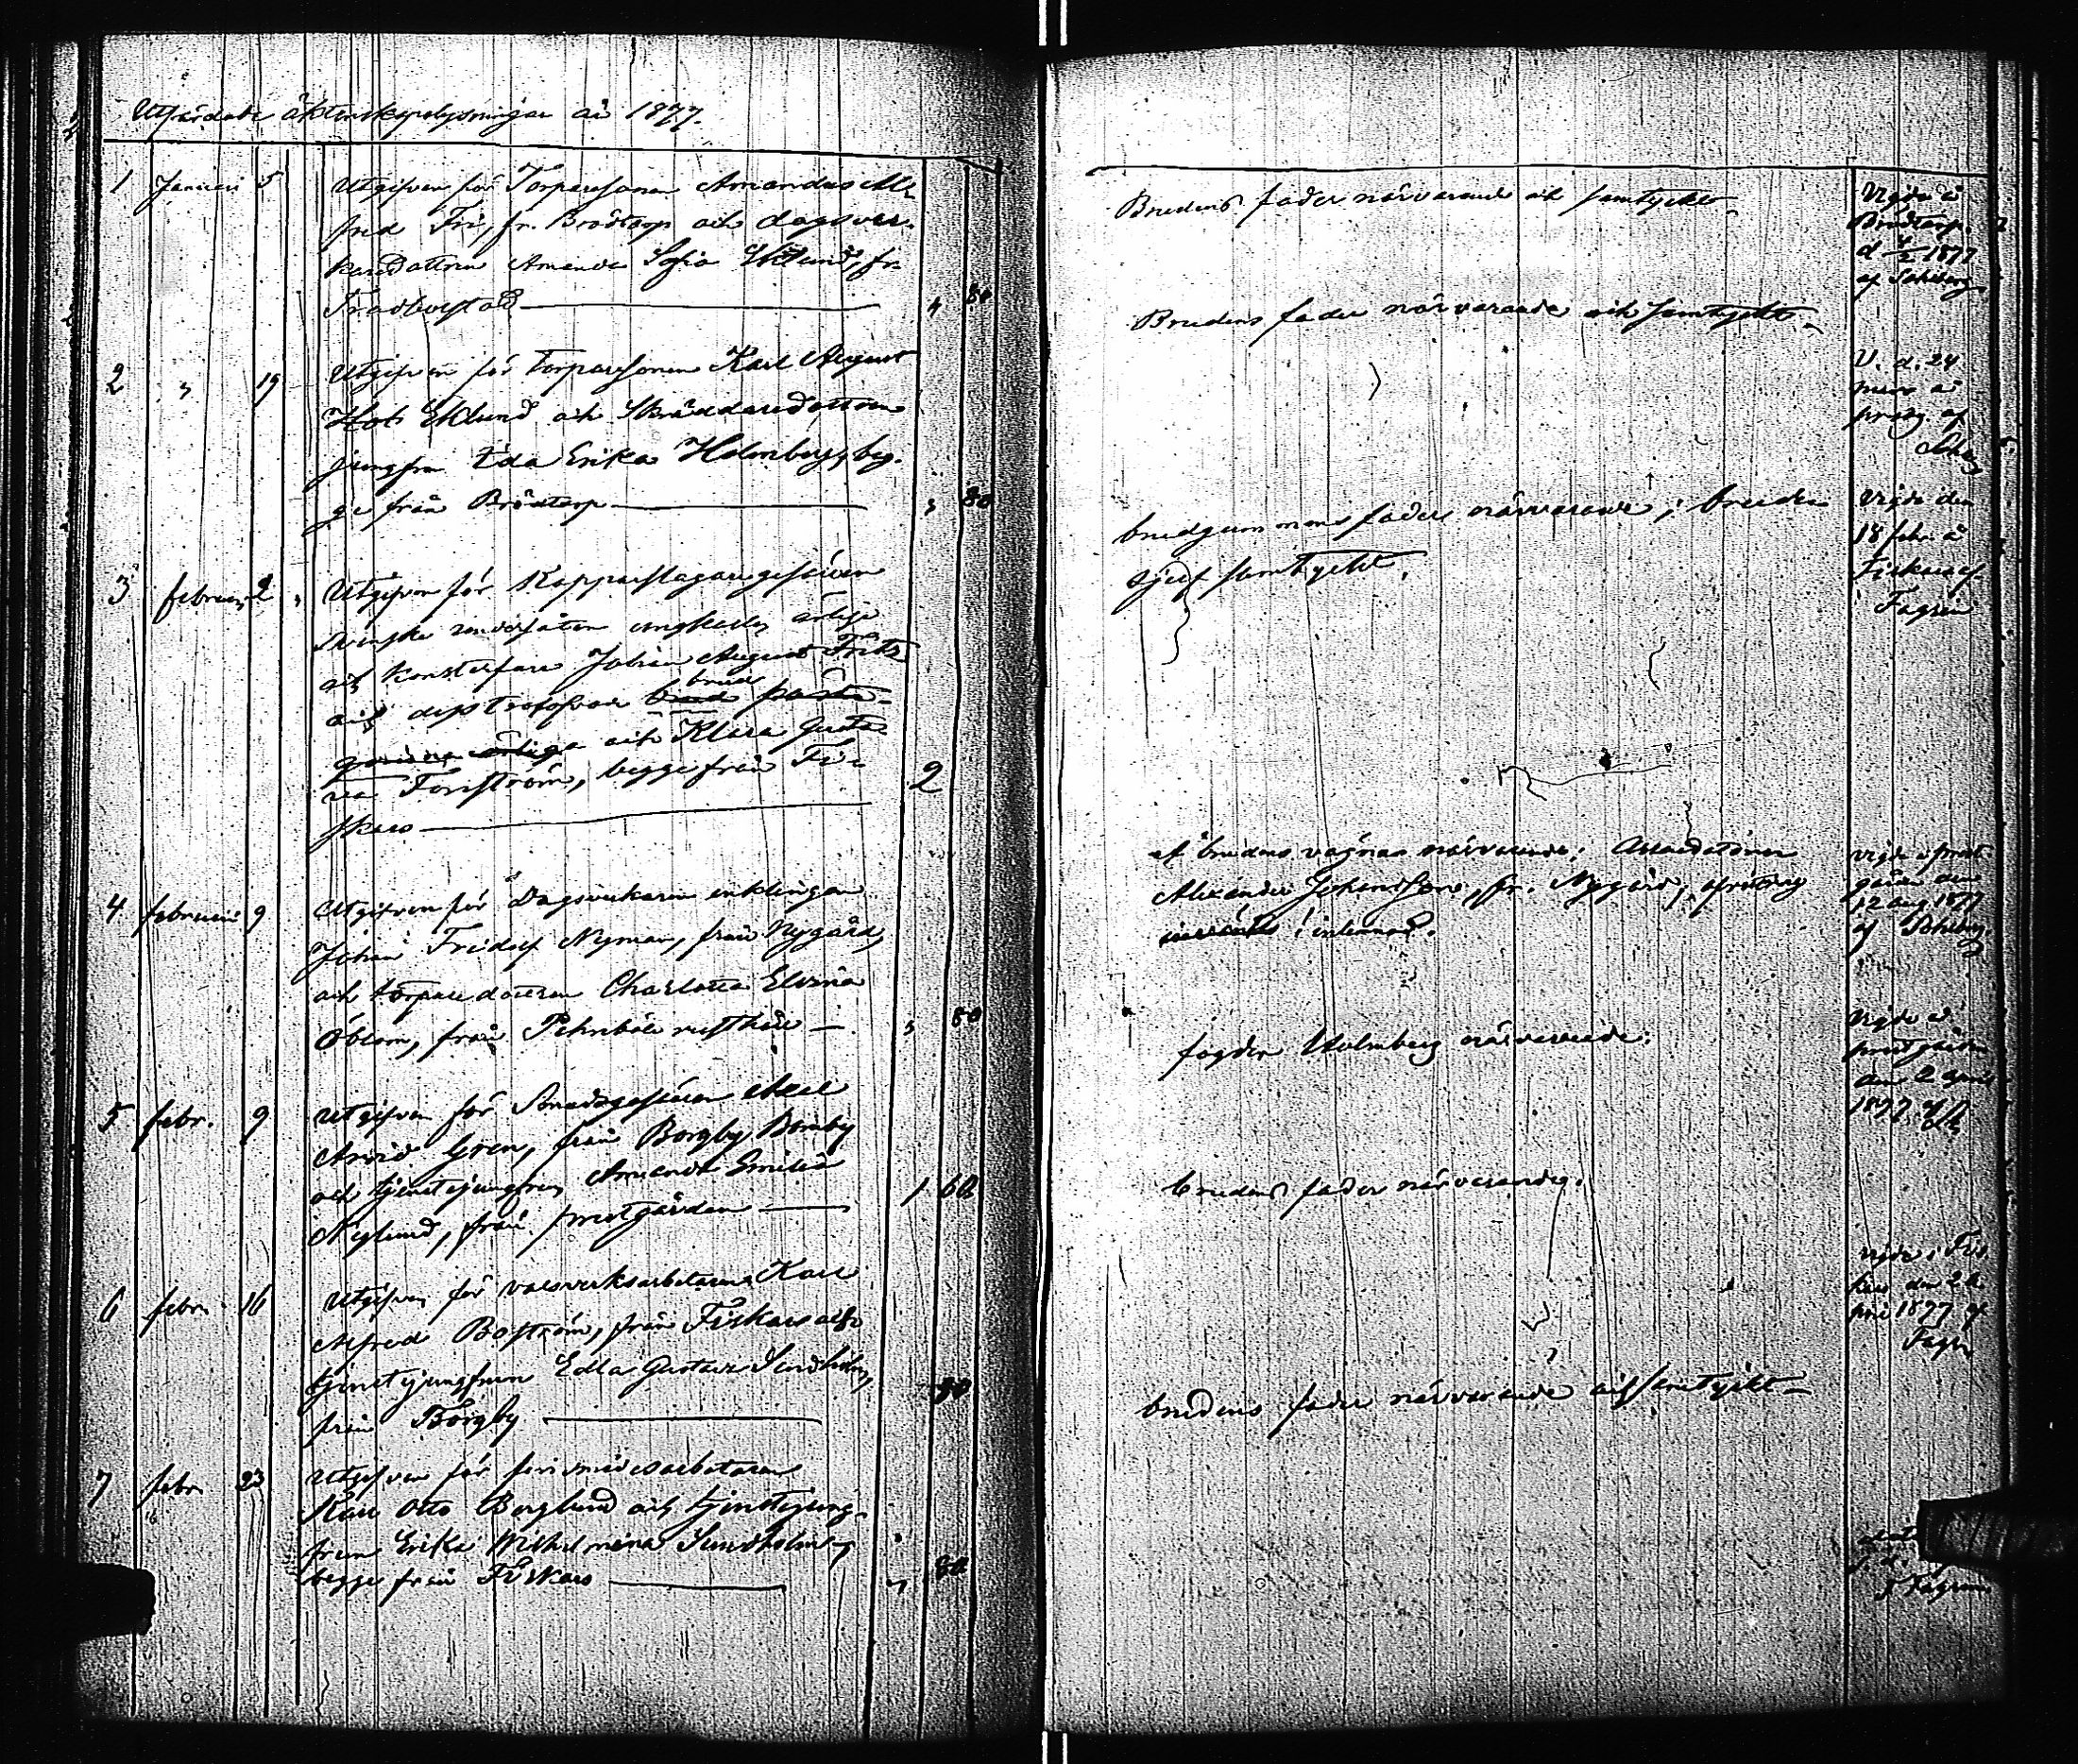 Utfärdade äktenskapslysningar år 1877.
1 Januari 5 Utgifven för Torparesonen Amandus Al-
fred Fri, fr. Brödtorp och dagsver-
karedottren Amanda Sofia Eklund, fr.
80
2 " 19 Utgifven för Torparesonen Karl August
Eklund och Skräddaredottren
jungfrun Eda Erika Holmberg, beg-
ge från Brödtorp 80
3 februari 2 Utgifven för Kopparslagaregesällen
Svenske undersåten ungkarlen ärlige
och konsterfarne Johan August
och dess brud
ärliga och Klara Gusta-
va Forsström, begge från Fi- 2
skars
4 februari 9 Utgifven för Dagsverkaren enklingen
Johan Fridolf Nyman, från Nygård,
och torparedottren Charlotta Elvira
Öblom, från rusthåll 80
5 febr. 9 Utgifven för Smedsgesällen Axel
Arvid Gren, från Borgby Bomby
och tjenstejungfrun Amanda Emilia 1 60
Nylund, från prestgården
6 febr. 16 Utgifven för valsverksarbetaren Karl
Alfred Boström, från Fiskars och
tjenstejungfrun Edla Gustava Sundholm, 80
från Borgby
7 febr. 23 Utgifven för finsmidesarbetaren
Karl Otto Berglund och tjenstejung-
frun Erika Wilhelmina Sundholm,
begge från Fiskars 80
Brudens fader närvarande och samtyckte
Brudens fader närvarande och samtyckte
brudgummens fader närvarande; bruden
sjelf samtyckt.
å brudens vägnar närvarande;
Alexander Johansson, fr. Nygård,
inlemnad.
fogden Holmberg närvarande.
brudens fader närvarande.
brudens fader närvarande och samtyckt
Vigde å
Brödtorp
d 4/2 1877
af
V. d. 24
mars å
prstg af
Vigde den
18 febr. å
Fiskars af
Fagrén
vigde å prest-
gården den
12 aug 1877
af
Vigde å
prestgården
den 2 april
1877 af
vigde i Fis-
kars den 2 a-
pril 1877 af
Fagrén
Fagrén